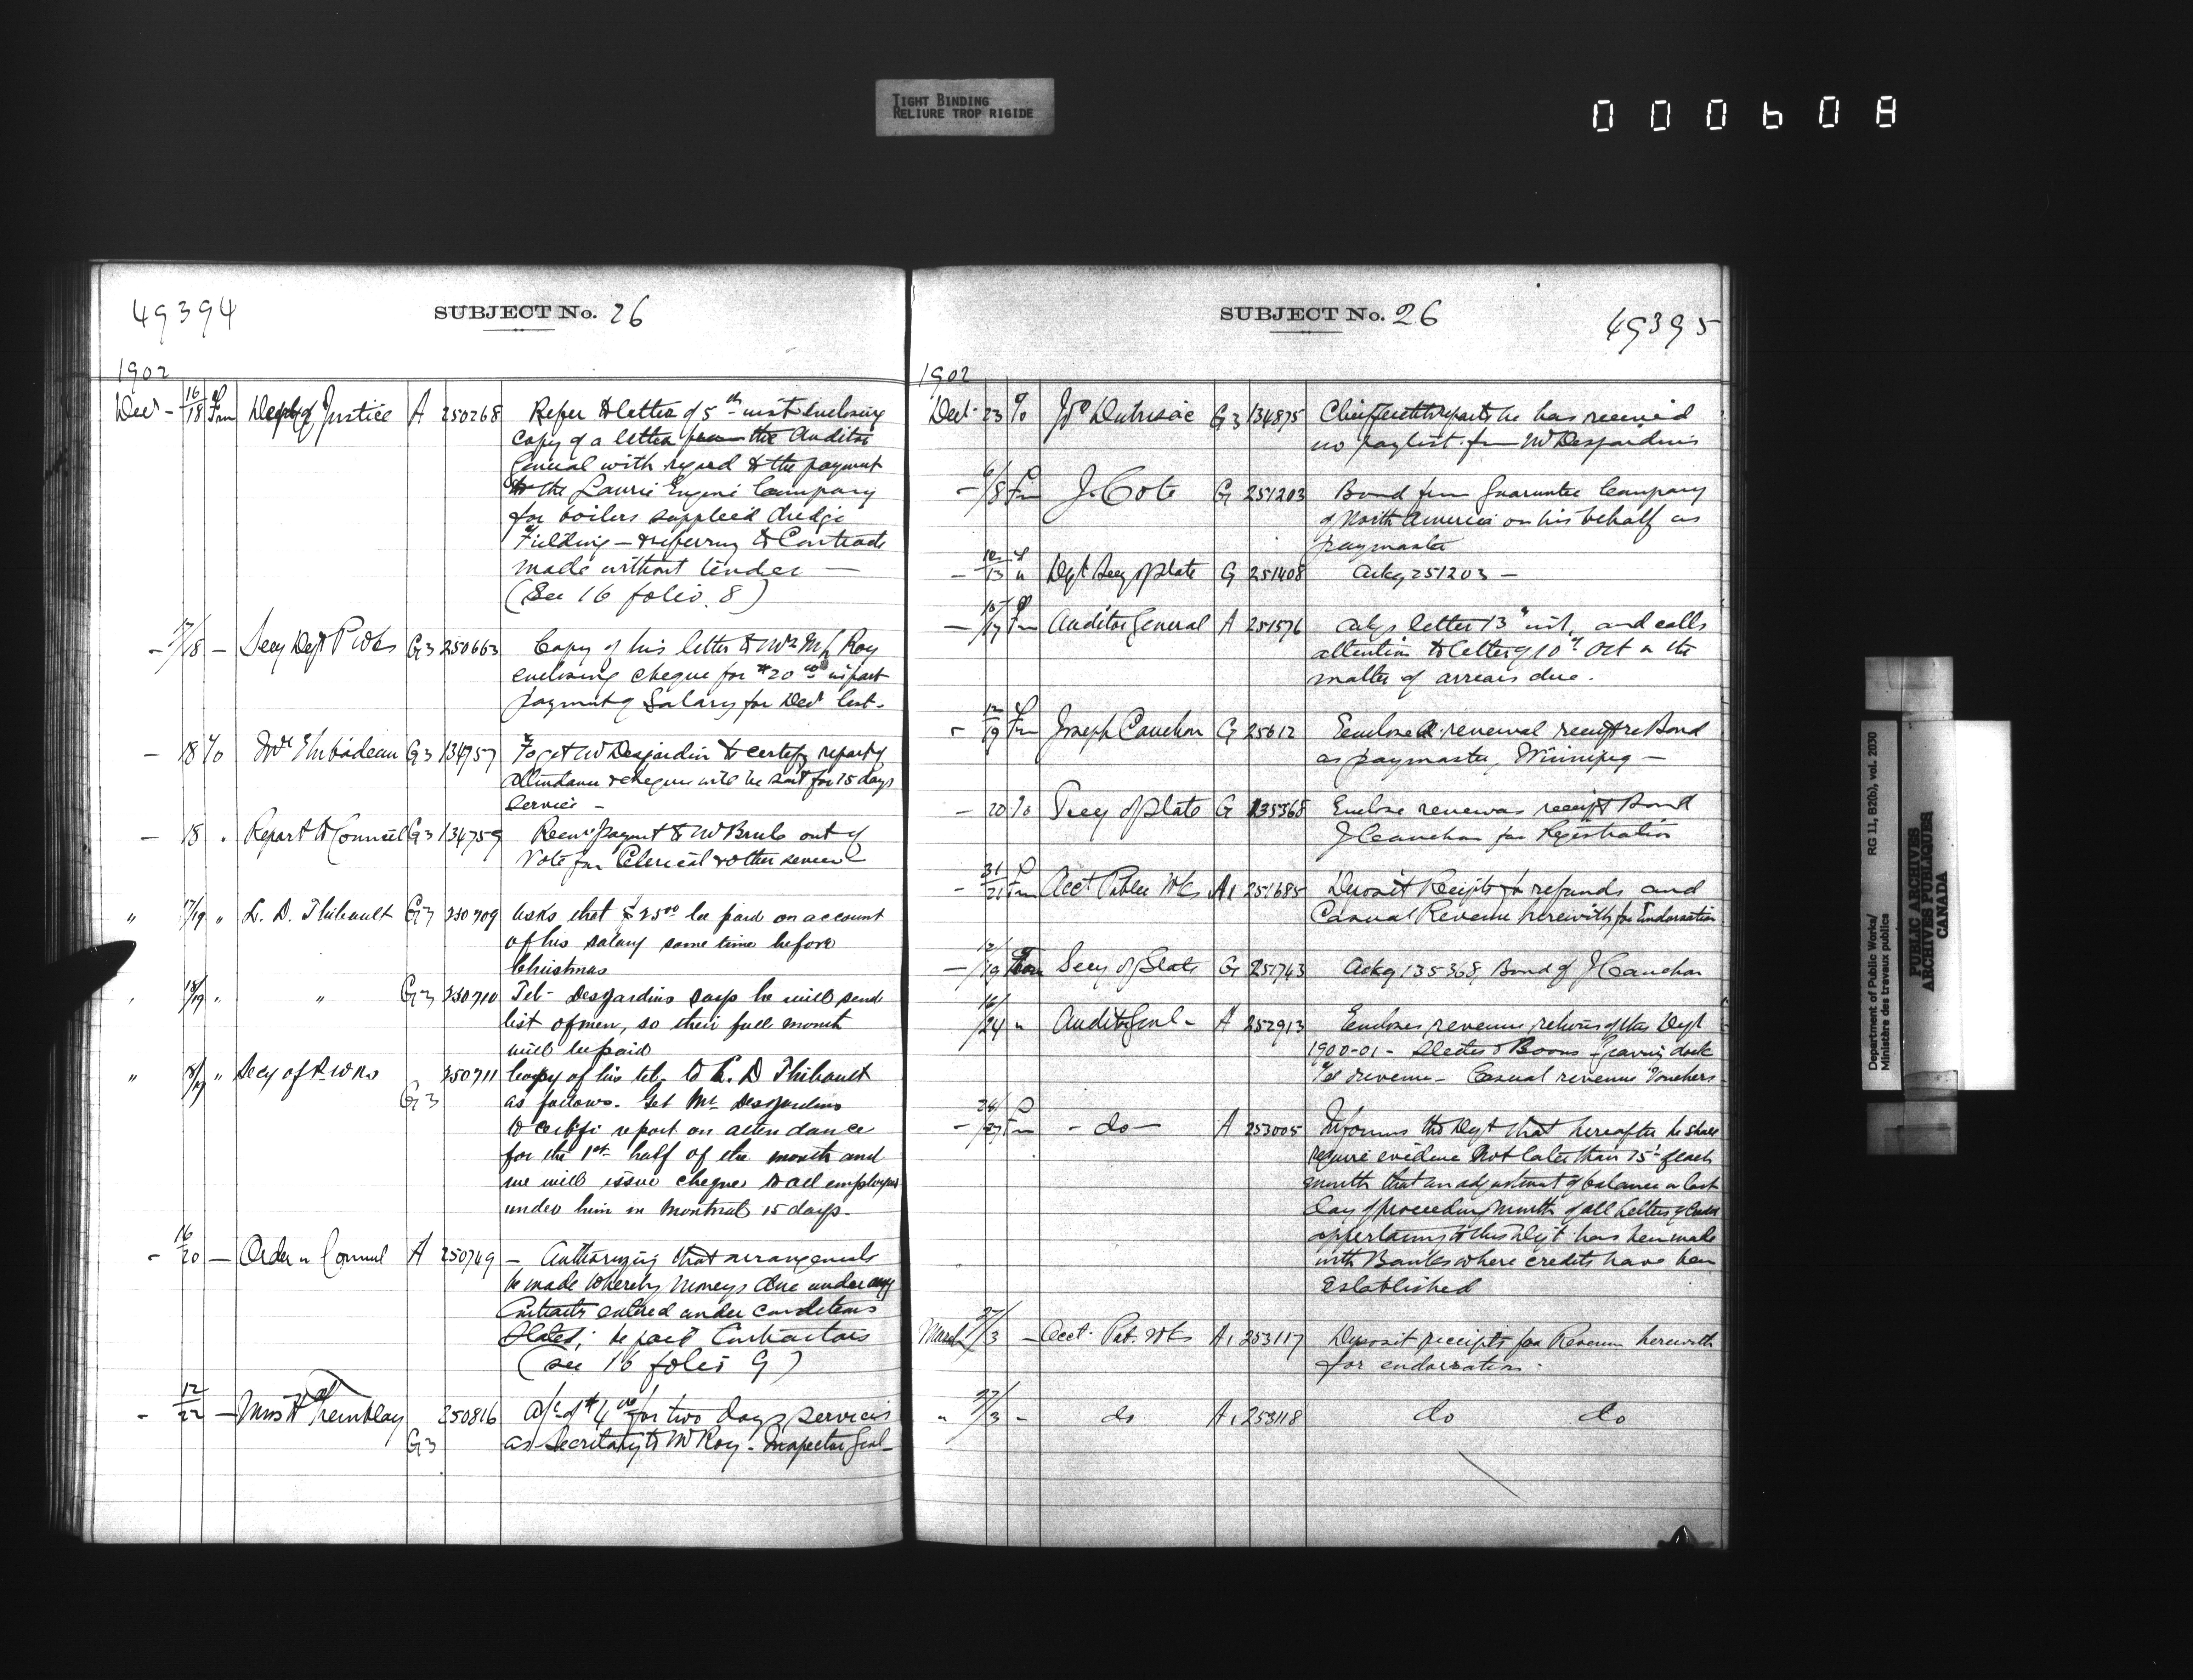 TIGHT BINDING
RELIURE TROP RIGIDE
000608
49394
SUBJECT No. 26
1902
Decr - 16/18 Frm Dept of Justice A 250268 Refer to letter of 5th inst enclosing
copy of a letter from the Auditor
General with regard to the payment
to the Laurie Engine Company
for boilers supplied dredge
"Fielding" — referring to Contracts
made without tender —
(See 16 folio 8)
- 17/18 - Secy Dept P Wks G3 250663 Copy of his letter to Mr Roy
enclosing cheque for $20.00 in part
payment of Salary for Decr last.
- 18 To Mr Thibodeau G3 134757 To get Mr Desjardin to certify report of
attendance & cheque will be sent for 15 days
service -
- 18 " Report to Council G3 134759 Recm payment to Mr Brule out of
Vote for Clerical & other service
" 17/19 " L. D. Thibault G3 250709 asks that $25.00 be paid on account
of his salary some time before
Christmas
" 18/19 " " G3 250710 Tel - Desjardins says he will send
list of men, so their full month
will be paid
" 18/19 " Secy of P. Wks 250711 Copy of his tel. to L. D Thibault
G3 as follows. Get Mr Desjardins
to certify report on attendance
for the 1st half of the month and
we will issue cheque to all employees
under him in Montreal 15 days.
- 16/20 - Order in Council A 250749 - Authorizing that arrangements
be made whereby moneys due under any
Contracts entered under conditions
stated; be paid Contractors
(see 16 folio 9)
- 12/22 - Miss A Tremblay 250816 a/c of $4.00 for two days services
G3 as Secretary to Mr Roy - Inspector Genl -
SUBJECT No. 26
49395
1902
Decr 23 To Jos Dutrisac G3 134875 Chief reports he has received
no paylist from Mr Desjardins
- 6/8 Frm J. Cote G 251203 Bond from Guarantee Company
of North America on his behalf as
paymaster
- 12/13 " Dept Secy of State G 251408 Ackg 251203 -
- 15/17 Frm Auditor General A 251576 Ackgs letter 13" inst, and calls
attention to letter of 10th Oct in the
matter of arrears due.
- 12/19 Frm Joseph Cauchon G 25612 Enclosed renewal receipt re Bond
as paymaster, Winnipeg -
- 20 To Secy of State G 135368 Enclose renewal receipt Bond
J Cauchon for Registration
- 31/21 Frm Acct Public Wks A1 251685 Deposit Receipts for refunds and
Casual Revenue herewith for Endorsation
- 12/19 From Secy of State G 251743 Ackg 135368, Bond of J Cauchon
- 16/24 " Auditor Genl - A 252913 Encloses revenue returns of this Dept
1900-01 - Slides & Booms - graving dock
Tel revenue - Casual revenue Vouchers -
- 24/27 Frm - do - A 253005 Informs the Dept that hereafter he shall
require evidence not later than 15th of each
month that an adjustment of balance on last
day of preceding month of all Letters of Credit
appertaining to this Dept has been made
with Banks where credits have been
Established
March 27/3 - Acct. Pub. Wks A1 253117 Deposit receipts for Revenue herewith
for endorsation.
" 27/3 - do A1 253118 do do
Department of Public Works/
Ministère des travaux publics
RG 11, B2(b), vol. 2030
PUBLIC ARCHIVES
ARCHIVES PUBLIQUES
CANADA